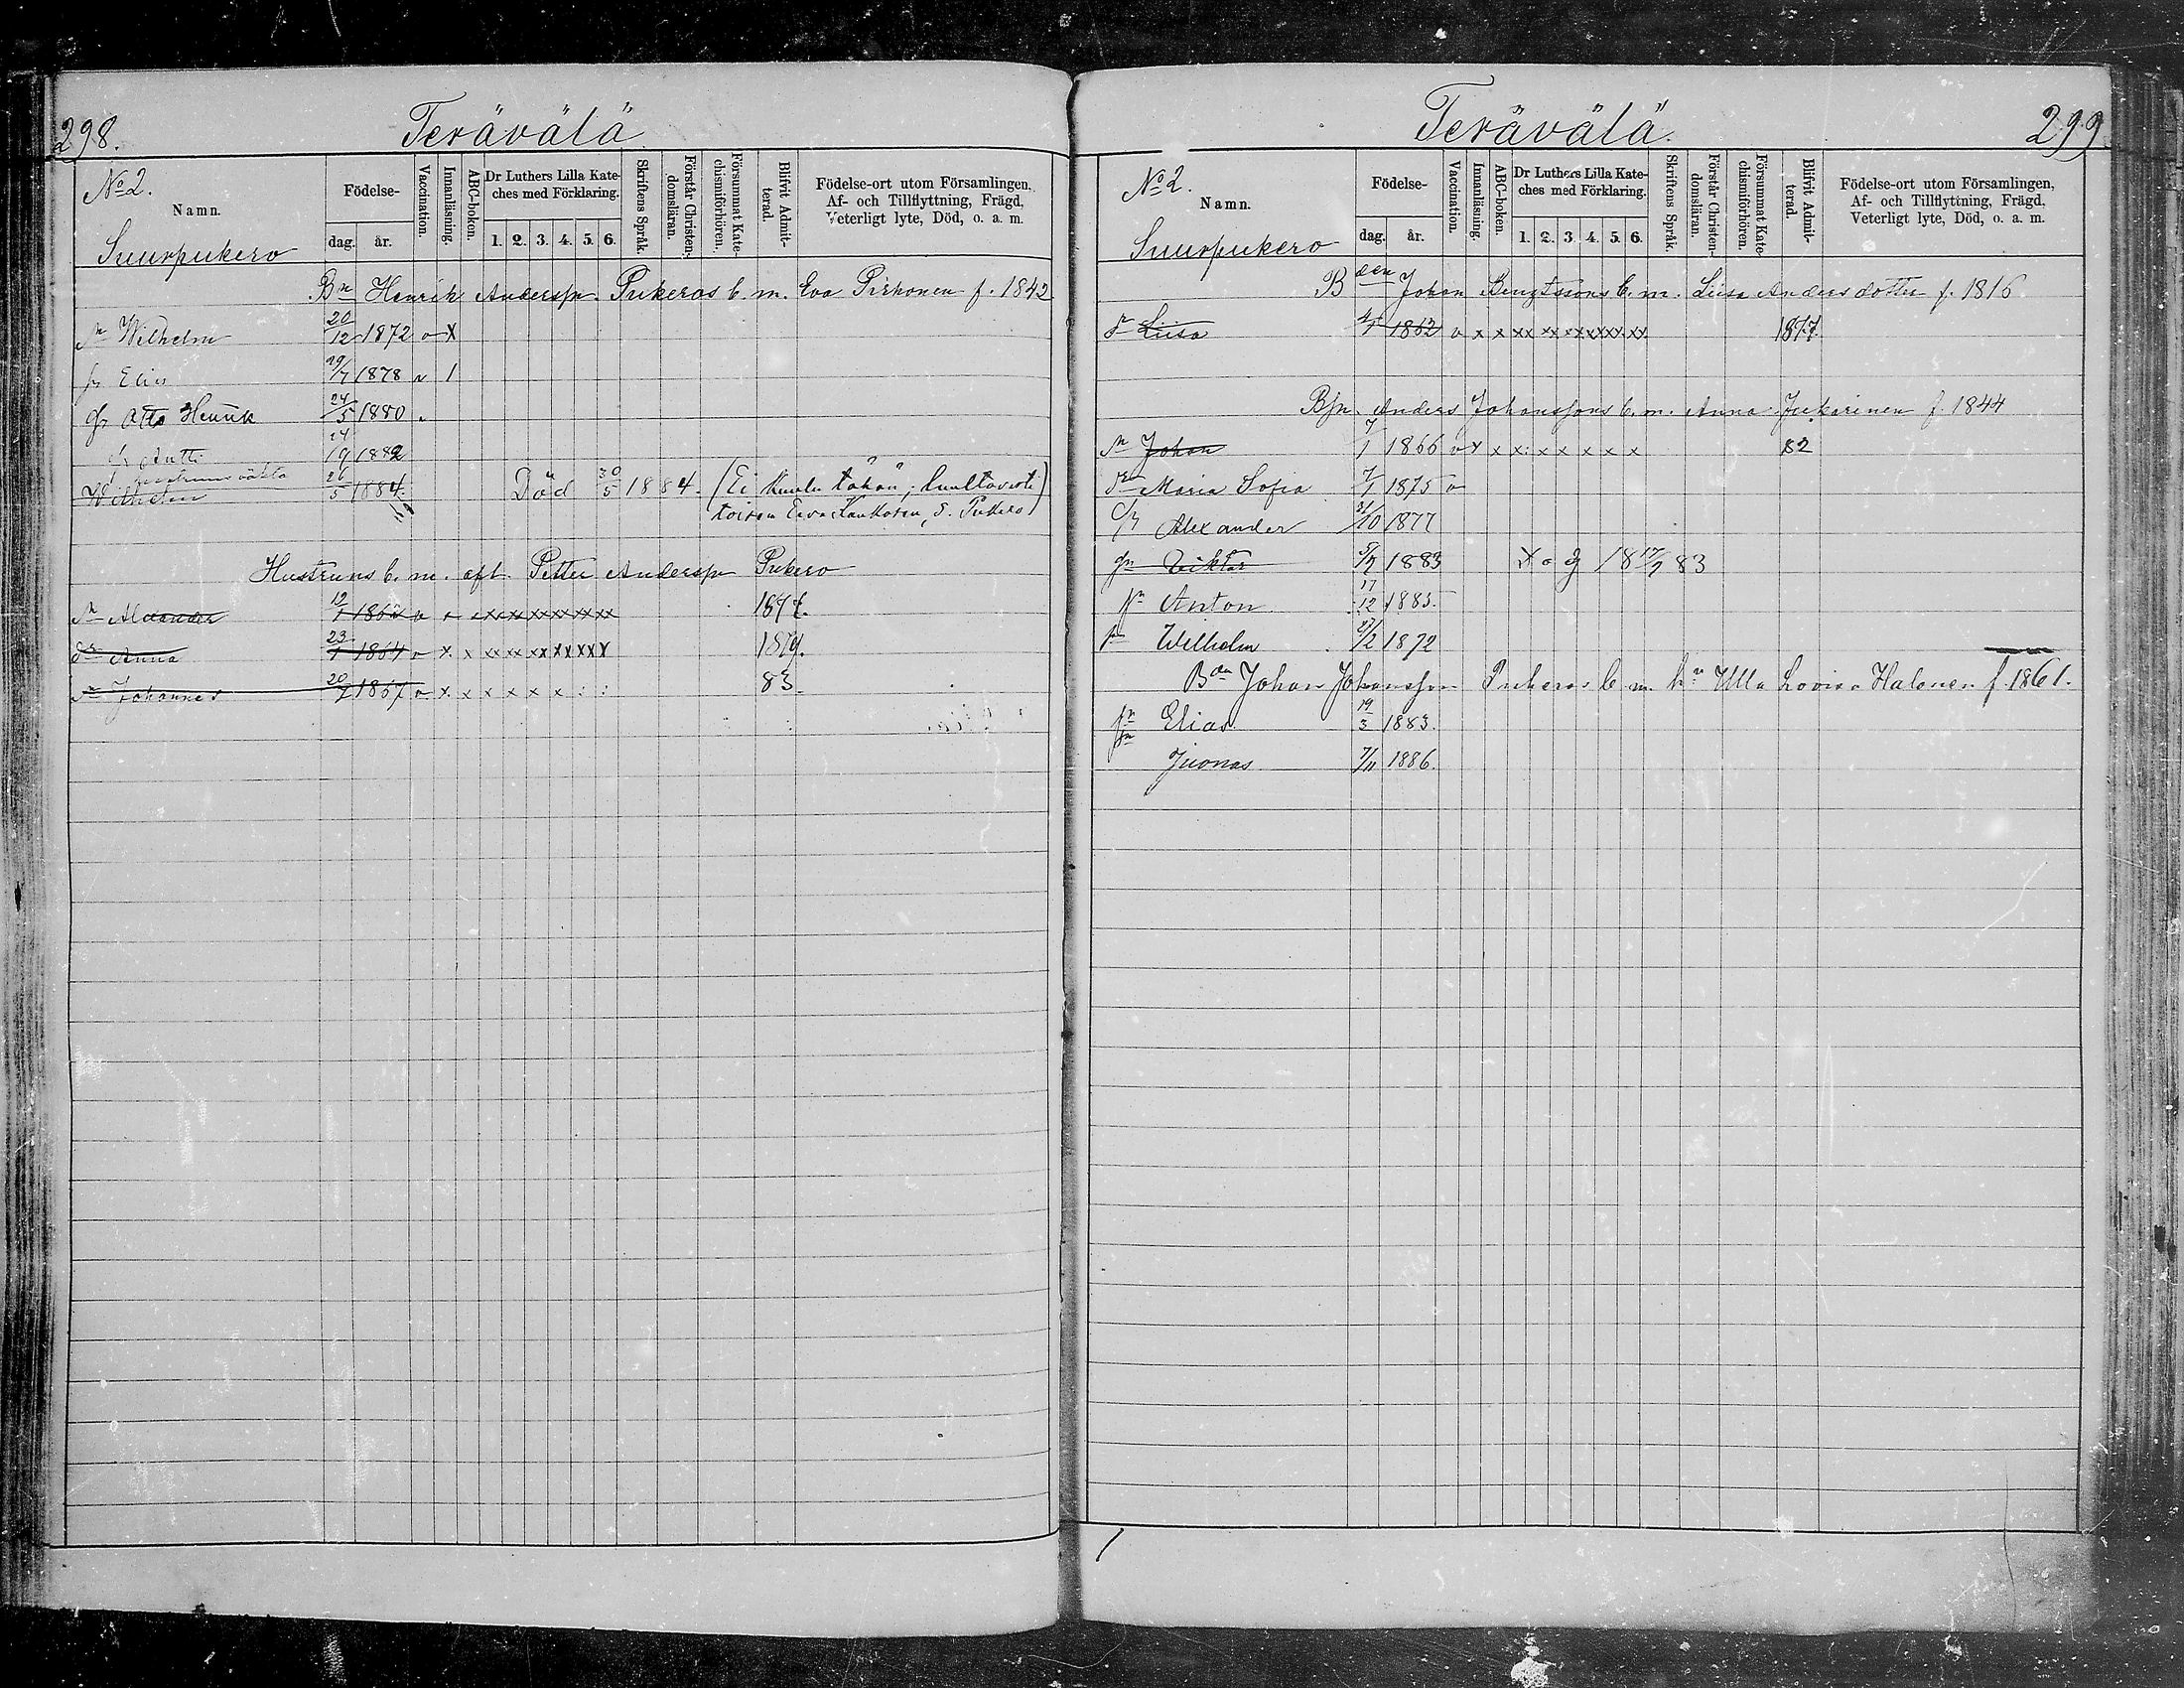 298.
Terävälä
No 2.
Namn.
Födelse-
dag. år.
Vaccination.
Innanläsning.
ABC-boken.
Dr Luthers Lilla Kate-
ches med Förklaring.
1. 2. 3. 4. 5. 6.
Skriftens Språk.
Förstår Christen-
domsläran.
Försummat Kate-
chismiförhören.
Blifvit Admit-
terad.
Födelse-ort utom Församlingen,
Af- och Tillflyttning, Frägd,
Veterligt lyte, Död, o. a. m.
Suurpukero
Bn Henrik Andersson Pukeros b. m. Eva Pirhonen f. 1842
sn Wilhelm 20/12 1872 v X
sn Elias 19/7 1878 v 1
sn Otto Henrik 24/5 1880 v
sn Antti 24/9 1882
Wilhelm 26/5 1884. Död 30/5 1884. (Ei kuulu tähän;
toisen Eeva Kauhasen, S. Pukero)
Hustruns b. m. afl. Petter Andersson Pukero
sn Alexander 12/1 1862 v x xxxxxxxxxxxx 1877.
dr Anna 23/1 1864 v x x xx xx xx xx xx x 1879.
sn Johannes 20/7 1867 v x x x x x x : : 83.
299
Terävälä.
No 2.
Namn.
Födelse-
dag. år.
Vaccination.
Innanläsning.
ABC-boken.
Dr Luthers Lilla Kate-
ches med Förklaring.
1. 2. 3. 4. 5. 6.
Skriftens Språk.
Förstår Christen-
domsläran.
Försummat Kate-
chismiförhören.
Blifvit Admit-
terad.
Födelse-ort utom Församlingen,
Af- och Tillflyttning, Frägd,
Veterligt lyte, Död, o. a. m.
Suurpukero
Bden Johan Bengtssons b. m. Liisa Andersdotter f. 1816
dr Liisa 4/1 1862 v x x xx xx xx xx xx xx 1877.
Bsn. Anders Johanssons b. m. Anna Jukarinen f. 1844
sn Johan 7/1 1866 v x x x: x x x x x 82
dr Maria Sofia 7/1 1875 v
sn Alexander 31/10 1877
sn Viktor 5/7 1883 X o g 18 17/7 83
sn Anton 17/12 1885.
sn Wilhelm 27/2 1872
Bden Johan Johansson Pukeros b. m. hu Ulla Lovisa Halonen f. 1861.
sn Elias 19/3 1883.
sn Juonas 7/11 1886.